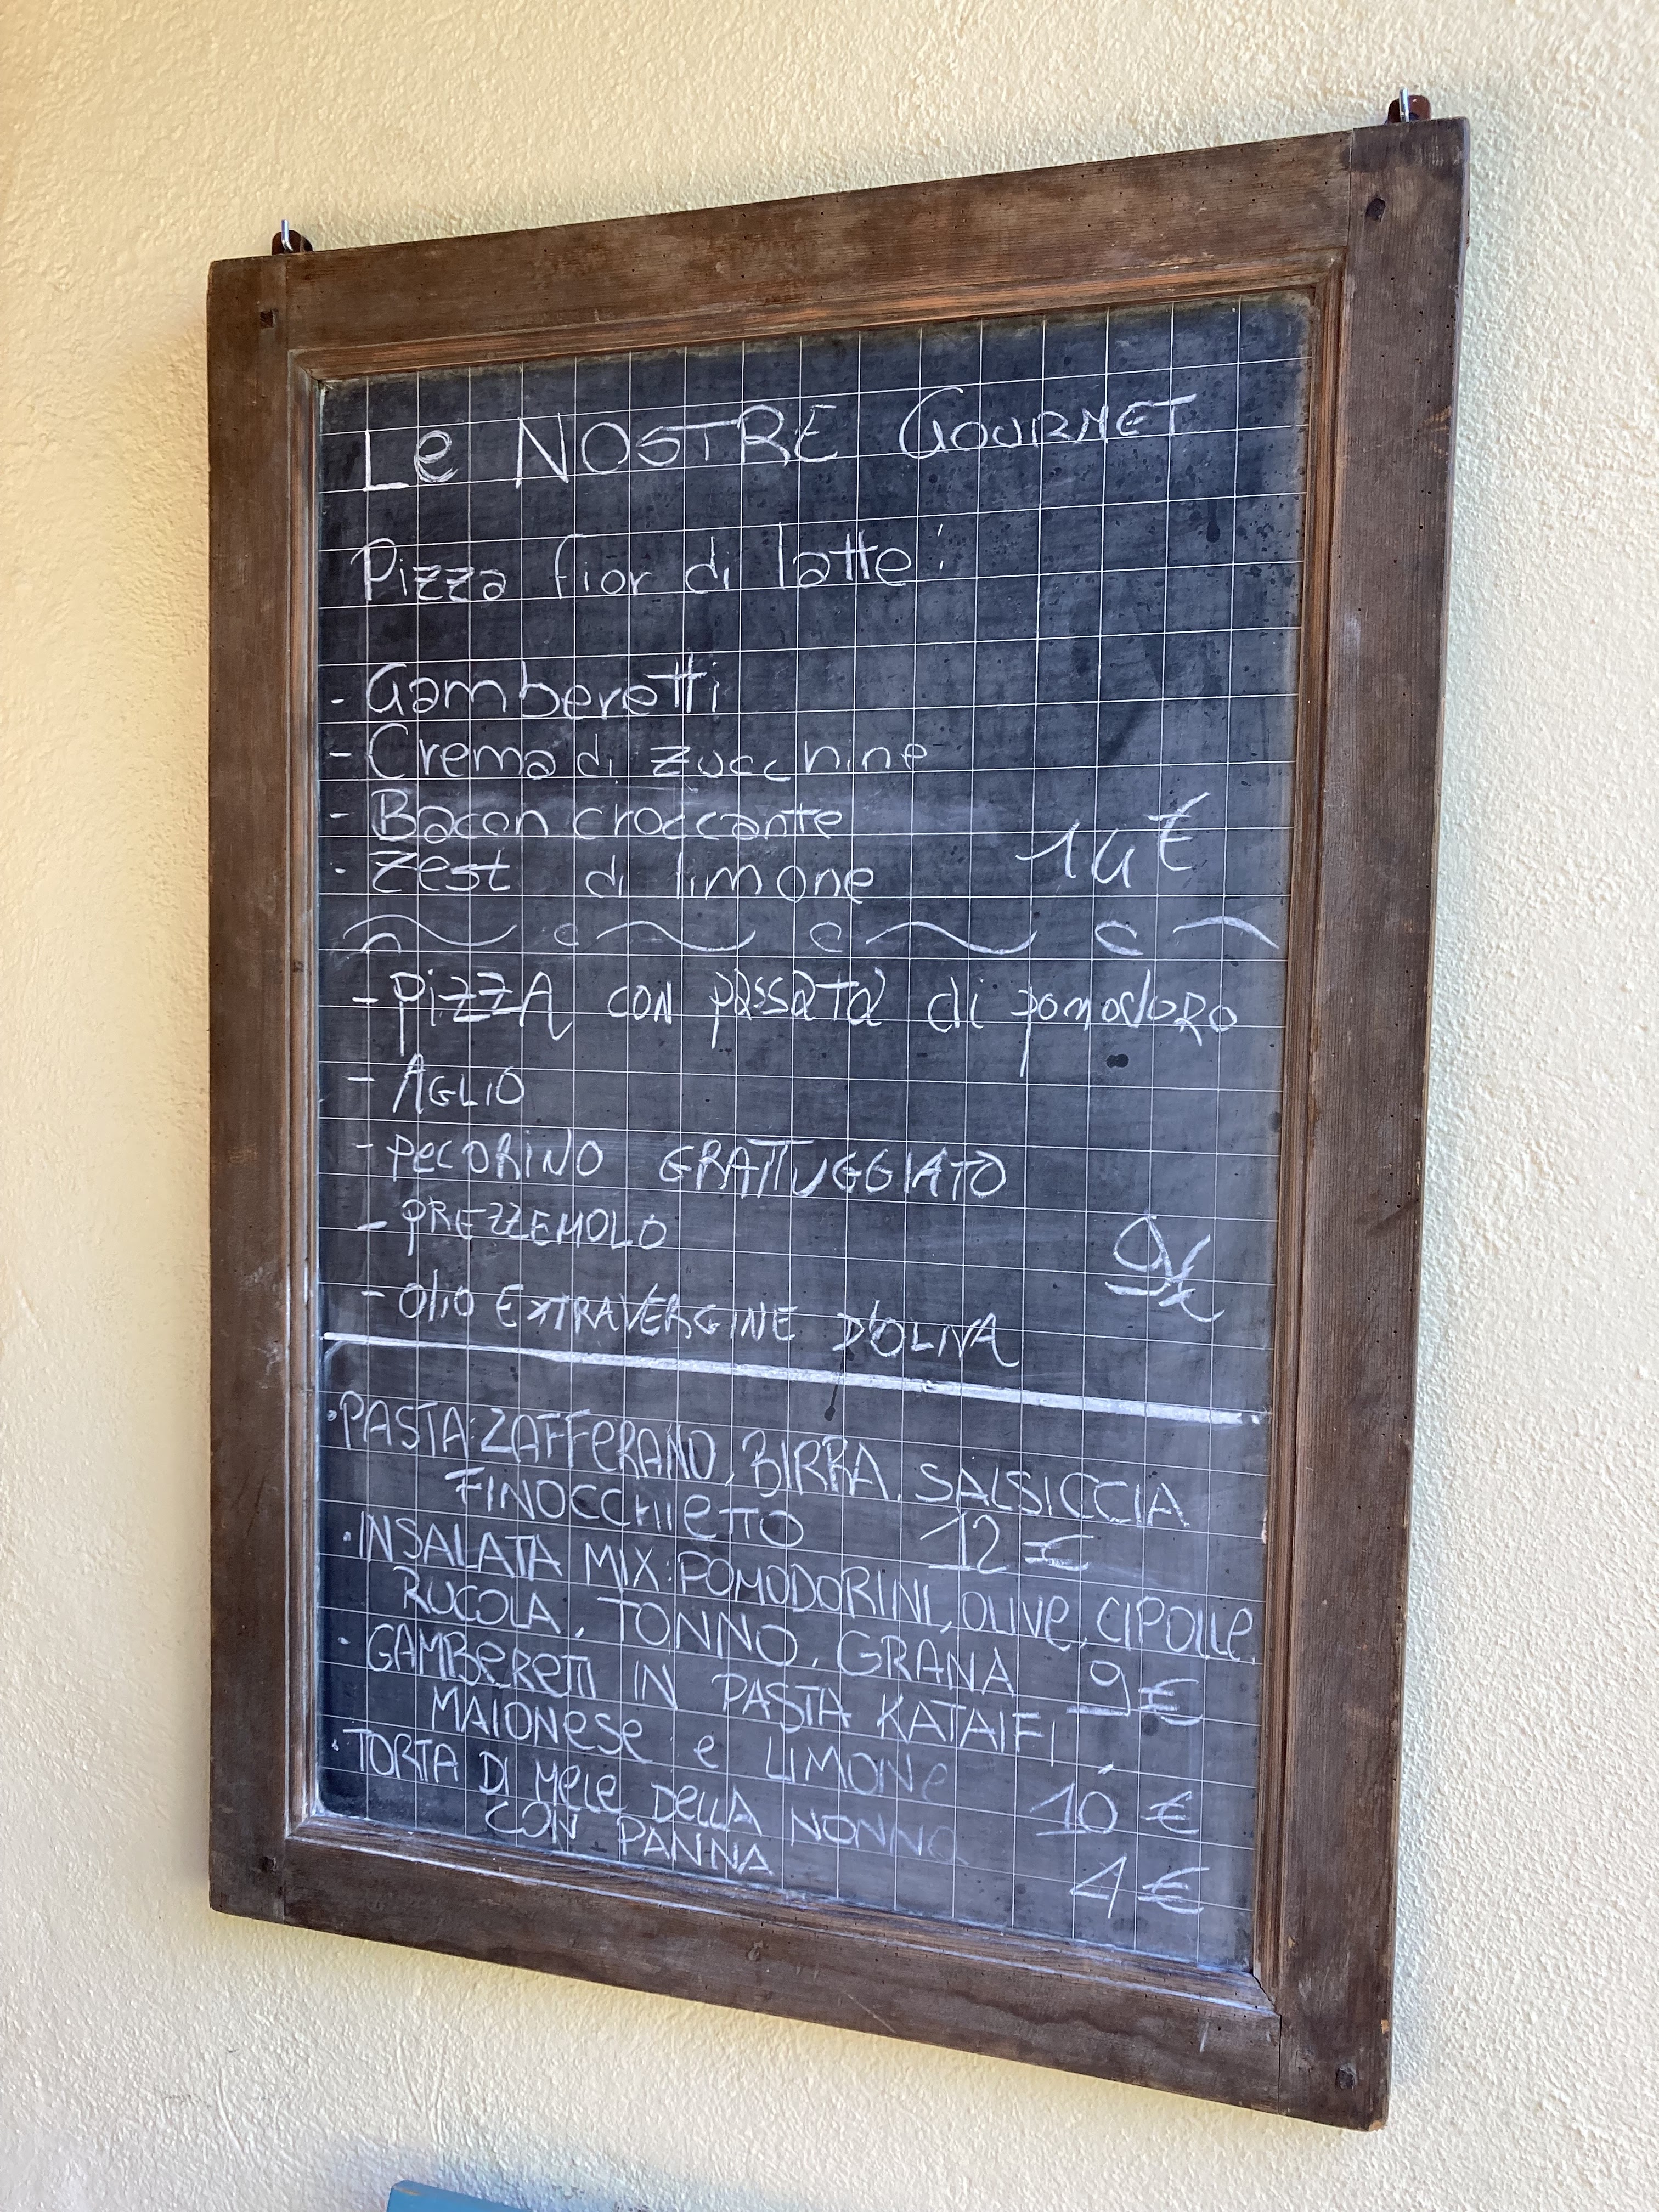 Le NOSTRE GOURMET
Pizza fior di latte:
- Gamberetti
- Crema di zucchine
- Bacon croccante
- Zest di limone 14€
- PIZZA CON passata di pomodoro
- AGLIO
- PECORINO GRATTUGGIATO
- PREZZEMOLO
- Olio EXTRAVERGINE D'OLIVA 9€
• PASTA: ZAFFERANO, BIRRA, SALSICCIA
FINOCCHIETTO 12€
• INSALATA MIX: POMODORINI, OLIVE, CIPOLLE,
RUCOLA, TONNO, GRANA 9€
• GAMBERETTI IN PASTA KATAIFI
MAIONESE e LIMONE 10€
• TORTA DI MELE DELLA NONNA
CON PANNA 4€